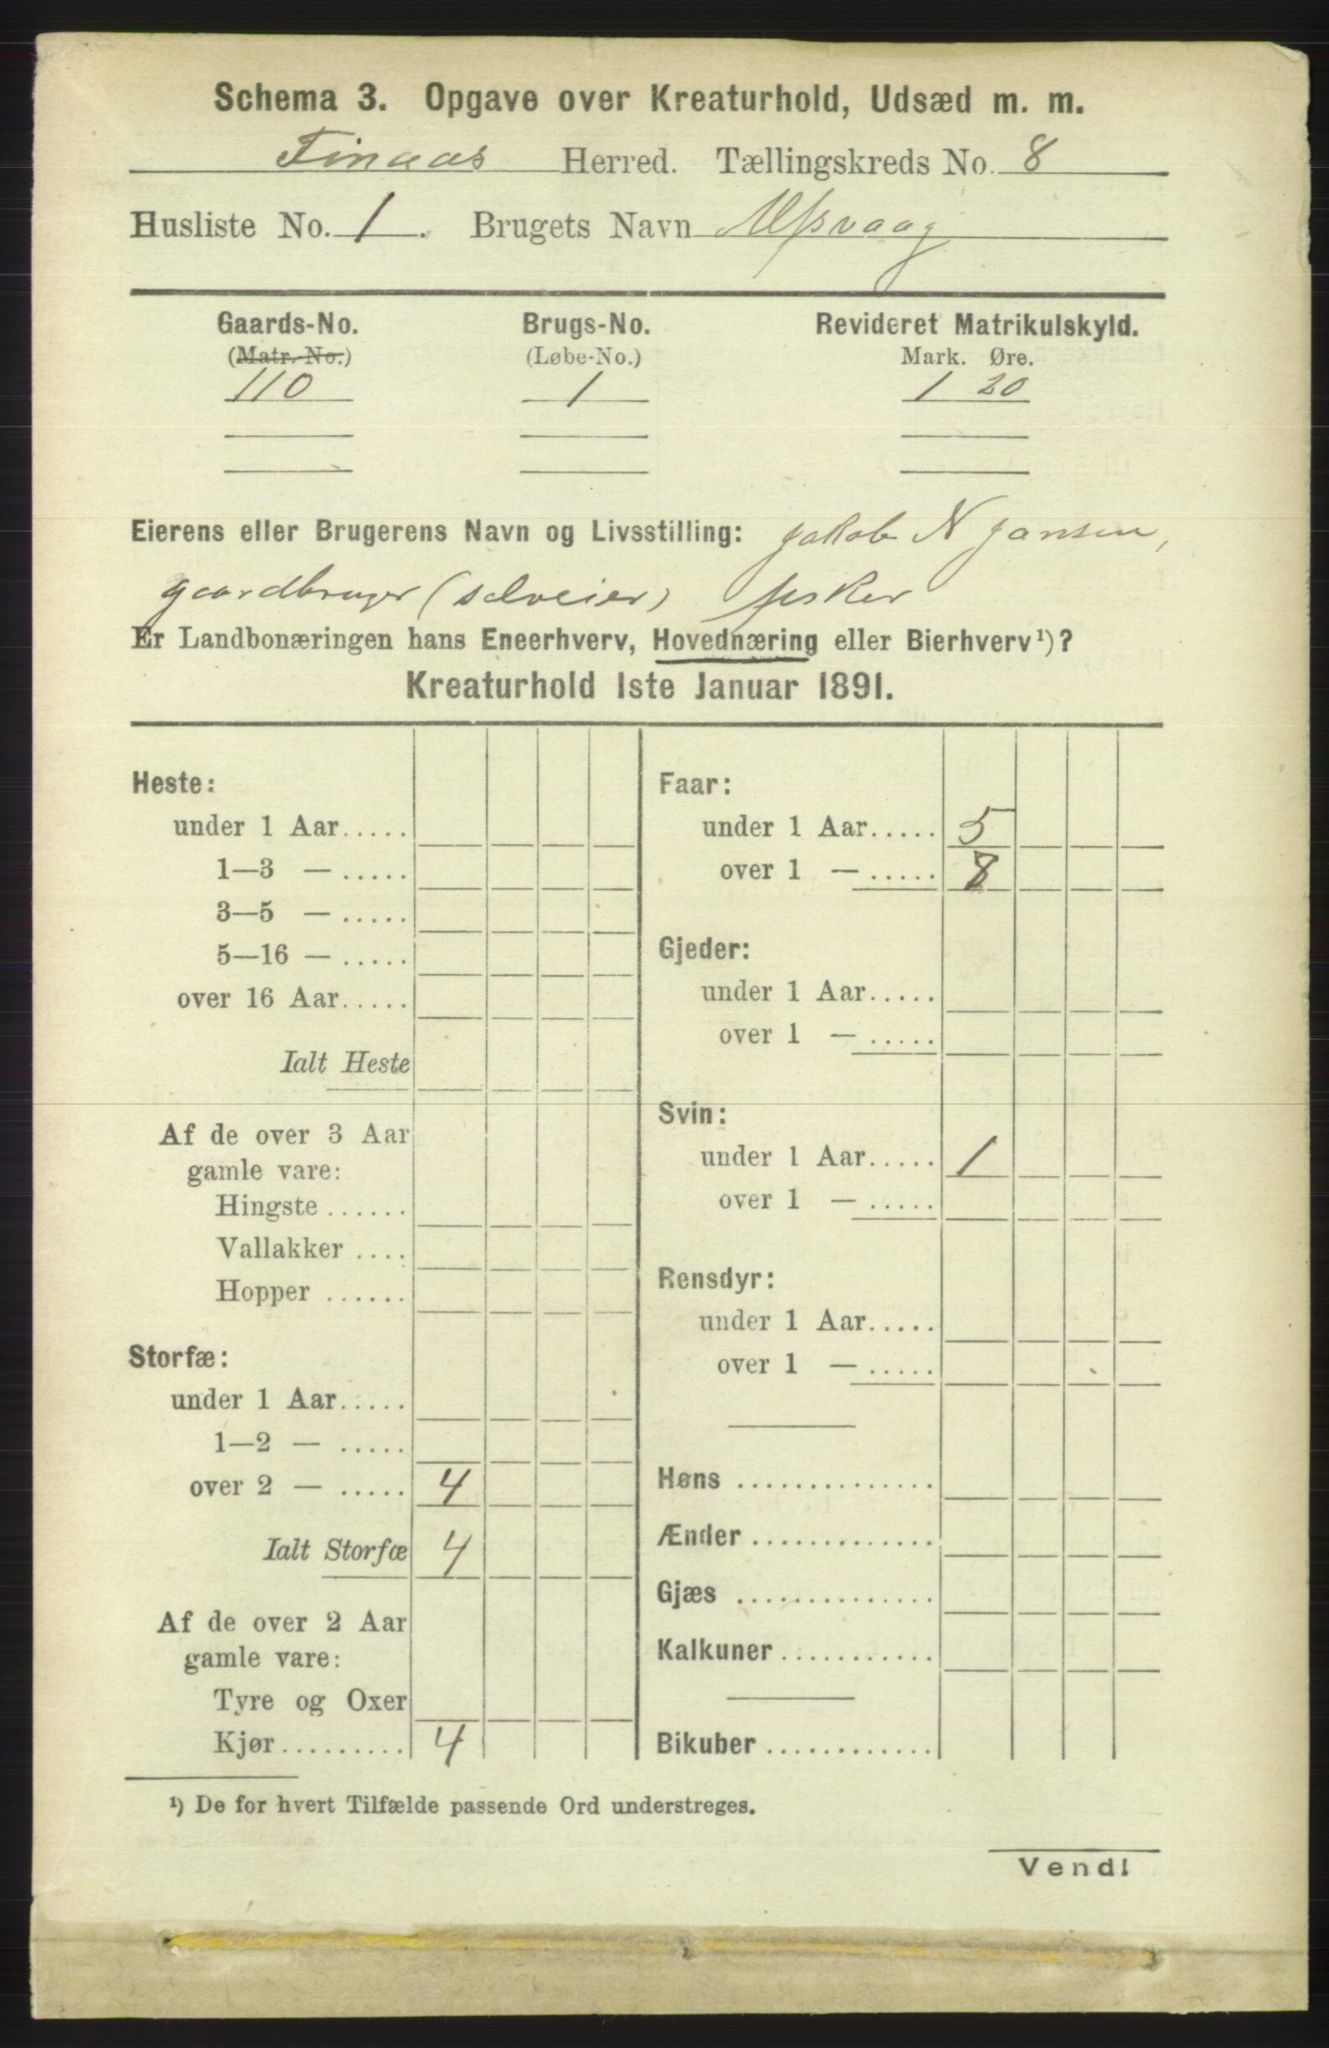 Schema 3. Opgave over Kreaturhold, Udsæd m. m.
Finaas Herred. Tællingskreds No. 8
Husliste No. 1. Brugets Navn Alfsvaag
Gaards-No. Brugs-No. Revideret Matrikulskyld.
(Matr.-No.) (Løbe-No.) Mark. Øre.
110 1 1 20
Eierens eller Brugerens Navn og Livsstilling: Jakob N Jansen,
gaardbruger (selveier) fisker
Er Landbonæringen hans Eneerhverv, Hovednæring eller Bierhverv¹)?
Kreaturhold 1ste Januar 1891.
Heste:
under 1 Aar.....
1—3 — .....
3—5 — .....
5—16 — .....
over 16 Aar.....
Ialt Heste
Af de over 3 Aar
gamle vare:
Hingste ......
Vallakker ....
Hopper ......
Storfæ:
under 1 Aar.....
1—2 — .....
over 2 — ..... 4
Ialt Storfæ 4
Af de over 2 Aar
gamle vare:
Tyre og Oxer
Kjør......... 4
Faar:
under 1 Aar..... 5
over 1 — ..... 8
Gjeder:
under 1 Aar.....
over 1 — .....
Svin:
under 1 Aar..... 1
over 1 — .....
Rensdyr:
under 1 Aar.....
over 1 — .....
Høns ..............
Ænder .............
Gjæs ..............
Kalkuner ...........
Bikuber ............
¹) De for hvert Tilfælde passende Ord understreges.
Vend!